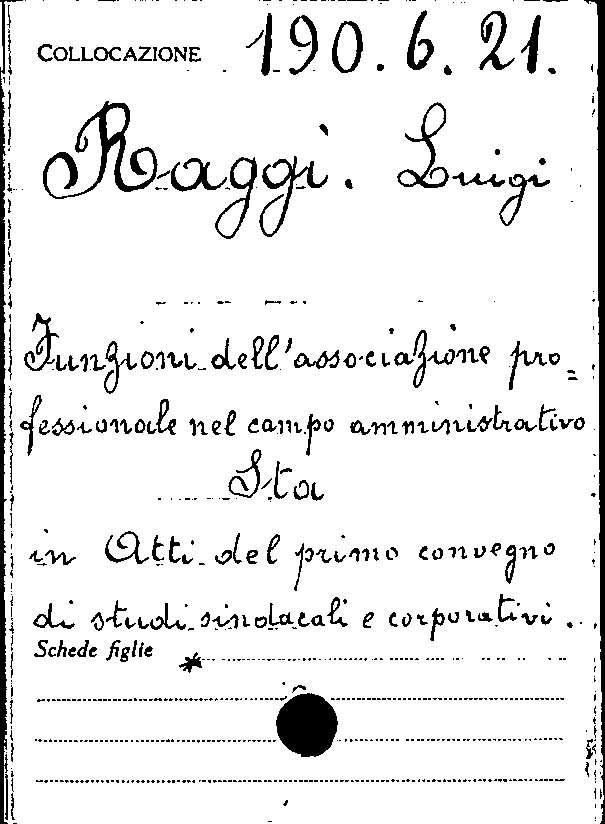 COLLOCAZIONE 190.6.21.
Raggi. Luigi
Funzioni dell'associazione pro=
fessionale nel campo amministrativo
Sta
in Atti del primo convegno
di studi sindacali e corporativi.
Schede figlie *